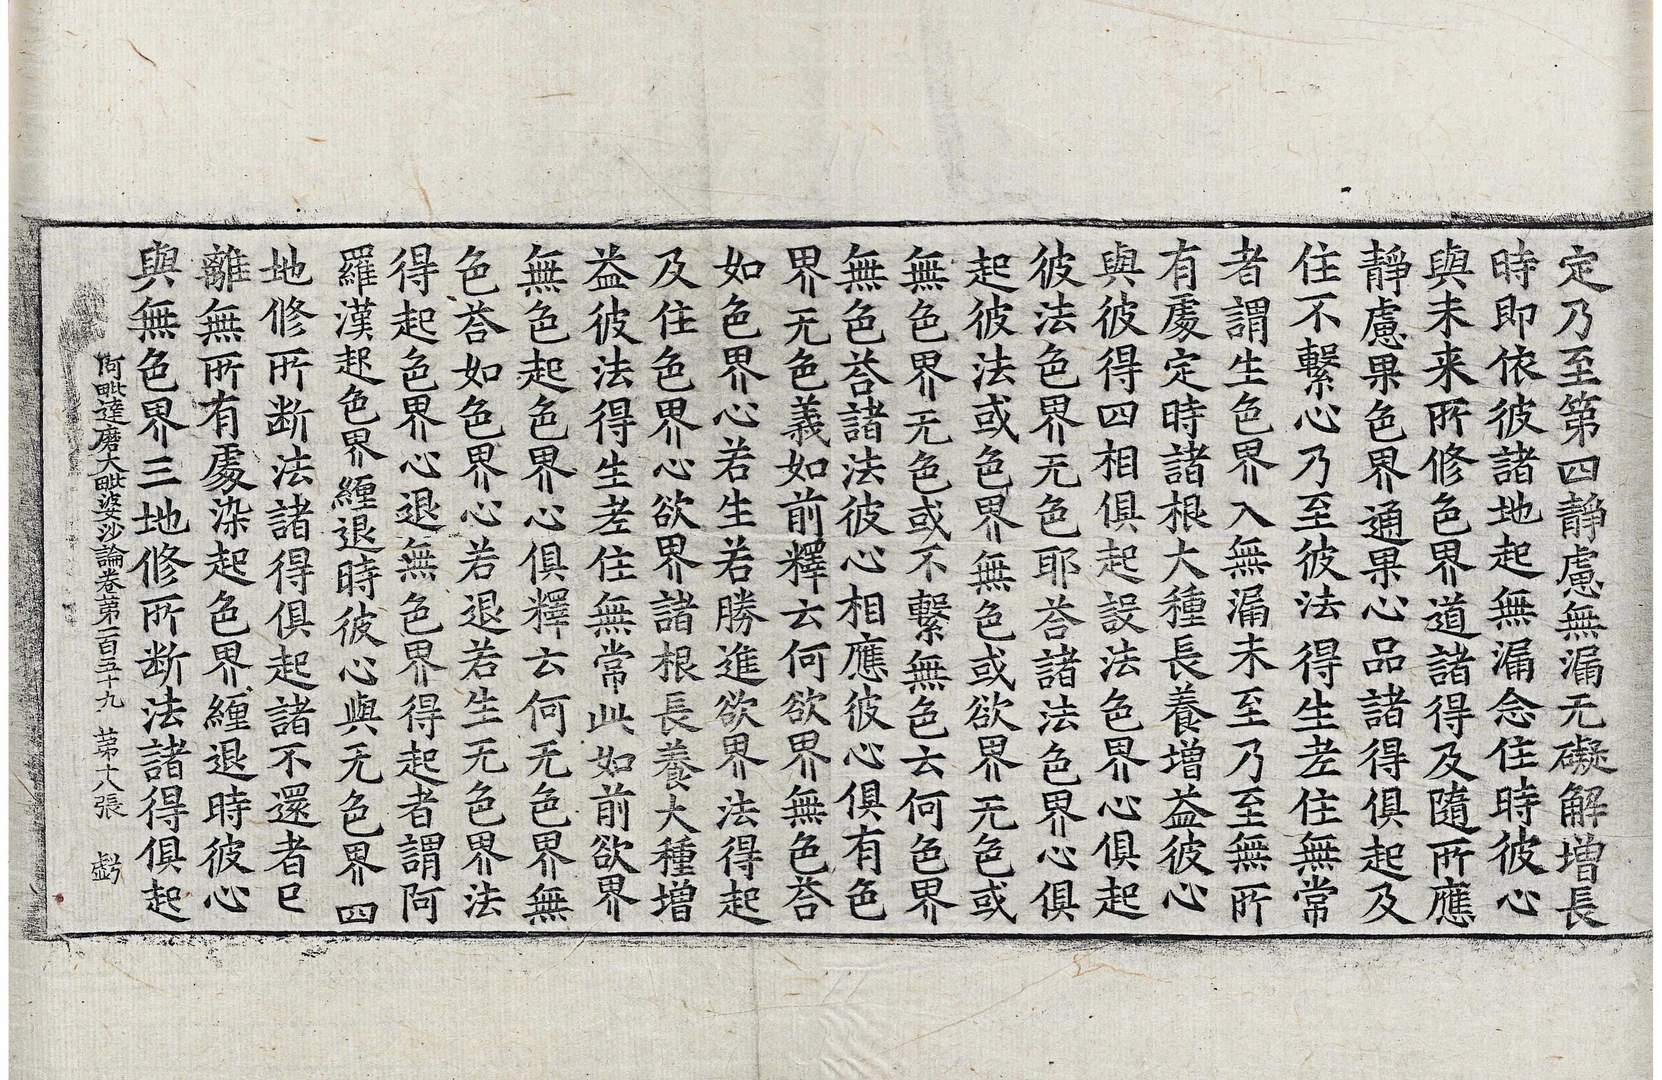 定乃至第四靜慮無漏无礙解增長
時即依彼諸地起無漏念住時彼心
與未来所修色界道諸得及隨所應
靜慮果色界通果心品諸得俱起及
住不繫心乃至彼法得生老住無常
者謂生色界入無漏未至乃至無所
有處定時諸根大種長養增益彼心
與彼得四相俱起設法色界心俱起
彼法色界无色耶荅諸法色界心俱
起彼法或色界無色或欲界无色或
無色界无色或不繫無色云何色界
無色荅諸法彼心相應彼心俱有色
界无色義如前釋云何欲界無色荅
如色界心若生若勝進欲界法得起
及住色界心欲界諸根長養大種增
益彼法得生老住無常此如前欲界
無色起色界心俱釋云何无色界無
色荅如色界心若退若生无色界法
得起色界心退無色界得起者謂阿
羅漢起色界纏退時彼心與无色界四
地修所斷法諸得俱起諸不還者已
離無所有處染起色界纏退時彼心
與無色界三地修所断法諸得俱起
阿毗達磨大毗婆沙論卷第一百五十九　苐十八張　虧